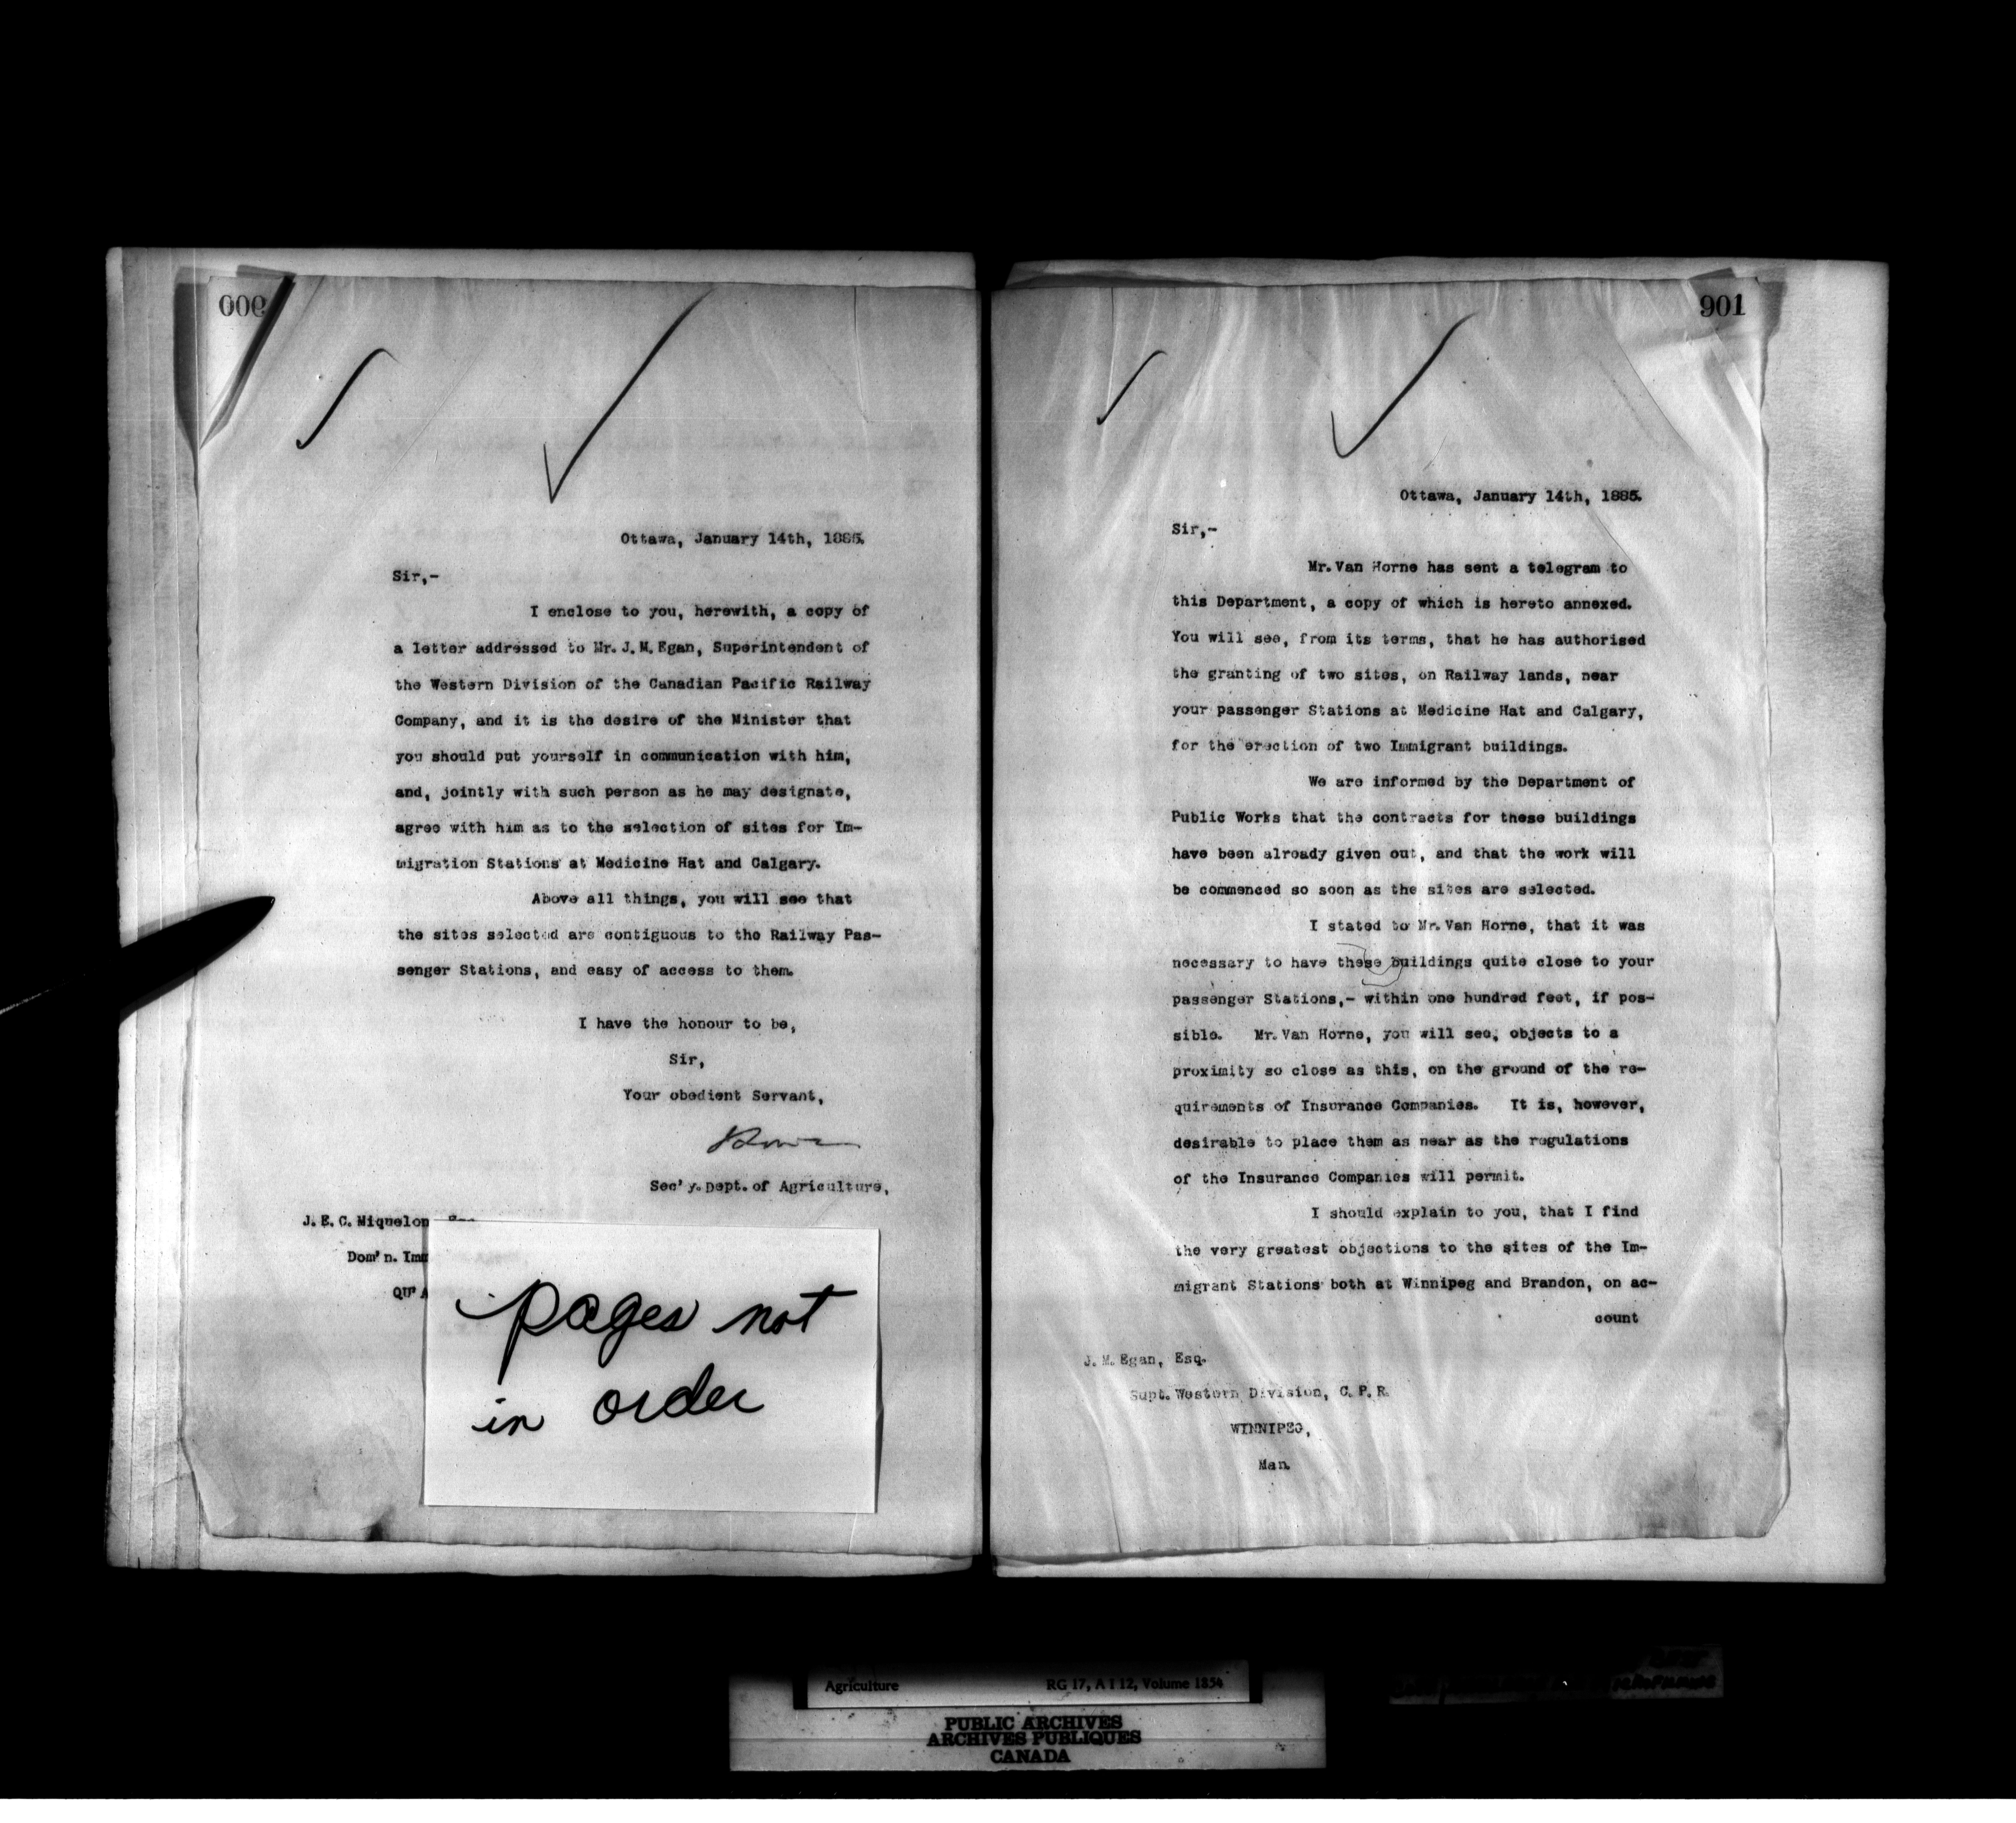 900
Ottawa, January 14th, 1885.
Sir,-
I enclose to you, herewith, a copy of
a letter addressed to Mr. J. M. Egan, Superintendent of
the Western Division of the Canadian Pacific Railway
Company, and it is the desire of the Minister that
you should put yourself in communication with him,
and, jointly with such person as he may designate,
agree with him as to the selection of sites for Im-
migration Stations at Medicine Hat and Calgary.
Above all things, you will see that
the sites selected are contiguous to the Railway Pas-
senger Stations, and easy of access to them.
I have the honour to be,
Sir,
Your obedient Servant,
Sec'y. Dept. of Agriculture,
J. E. C. Miquelon
Dom'n.
QU'A
pages not
in order
901
Ottawa, January 14th, 1885.
Sir,-
Mr. Van Horne has sent a telegram to
this Department, a copy of which is hereto annexed.
You will see, from its terms, that he has authorised
the granting of two sites, on Railway lands, near
your passenger Stations at Medicine Hat and Calgary,
for the erection of two Immigrant buildings.
We are informed by the Department of
Public Works that the contracts for these buildings
have been already given out, and that the work will
be commenced so soon as the sites are selected.
I stated to Mr. Van Horne, that it was
necessary to have these buildings quite close to your
passenger Stations,- within one hundred feet, if pos-
sible. Mr. Van Horne, you will see, objects to a
proximity so close as this, on the ground of the re-
quirements of Insurance Companies. It is, however,
desirable to place them as near as the regulations
of the Insurance Companies will permit.
I should explain to you, that I find
the very greatest objections to the sites of the Im-
migrant Stations both at Winnipeg and Brandon, on ac-
count
J. M. Egan, Esq.
Supt. Western Division, C. P. R.
WINNIPEG,
Man.
Agriculture RG 17, A I 12, Volume 1854
PUBLIC ARCHIVES
ARCHIVES PUBLIQUES
CANADA